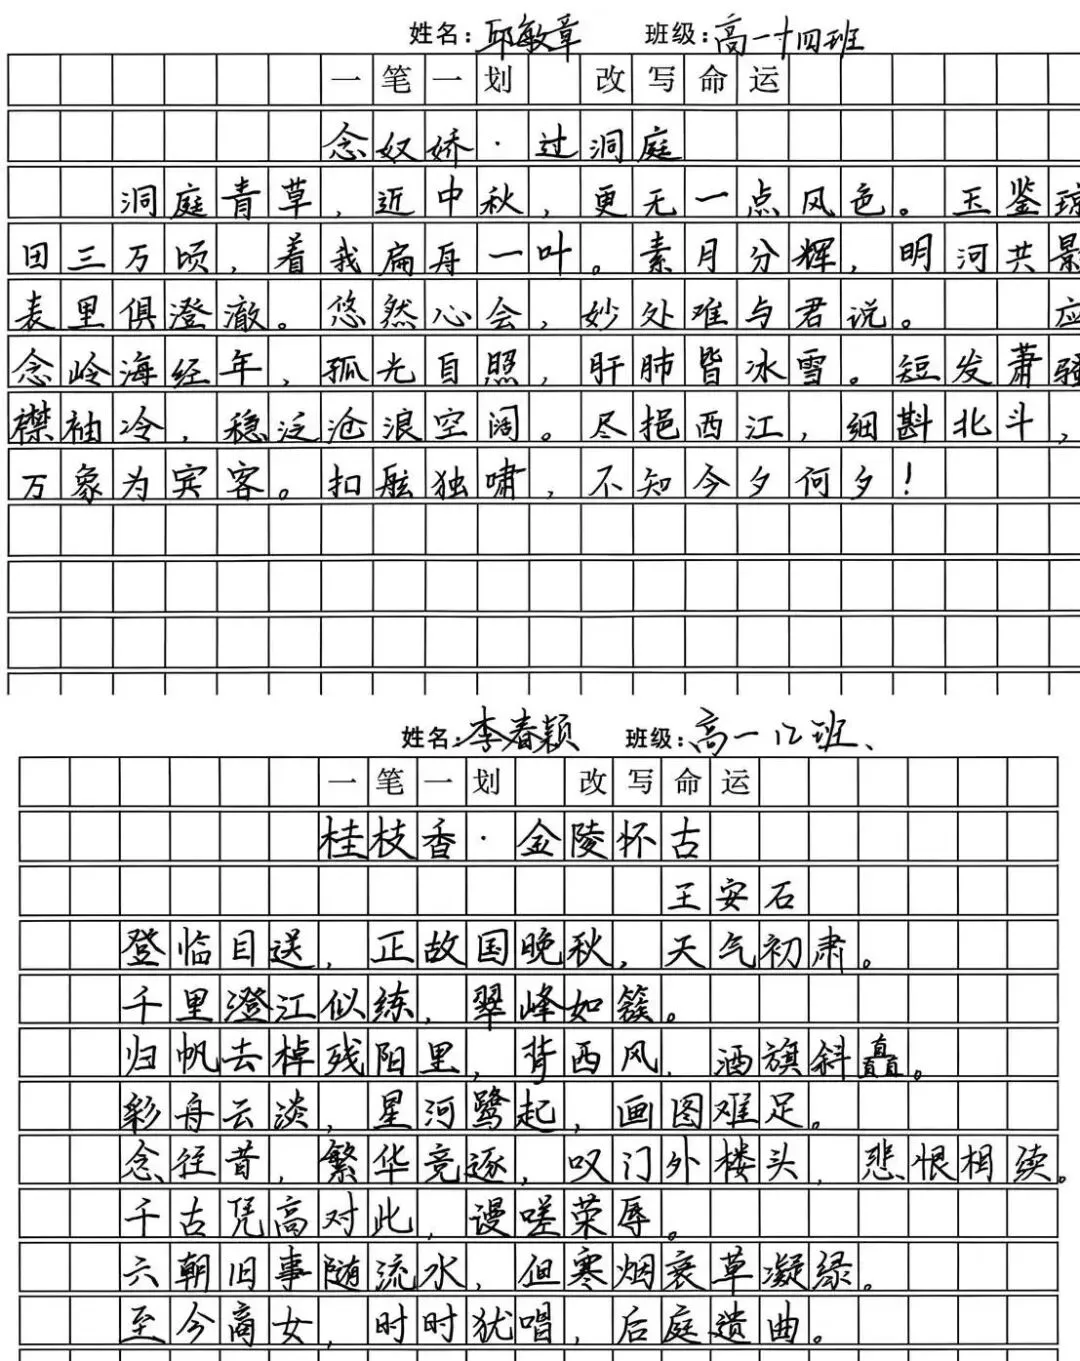 姓名：邱敏章 班级：高一十四班
一笔一划 改写命运
念奴娇·过洞庭
洞庭青草，近中秋，更无一点风色。玉鉴琼
田三万顷，着我扁舟一叶。素月分辉，明河共影
表里俱澄澈。悠然心会，妙处难与君说。 应
念岭海经年，孤光自照，肝肺皆冰雪。短发萧骚
襟袖冷，稳泛沧浪空阔。尽挹西江，细斟北斗，
万象为宾客。扣舷独啸，不知今夕何夕！
姓名：李春颖 班级：高一12班、
一笔一划 改写命运
桂枝香·金陵怀古
王安石
登临目送，正故国晚秋，天气初肃。
千里澄江似练，翠峰如簇。
归帆去棹残阳里，背西风，酒旗斜矗。
彩舟云淡，星河鹭起，画图难足。
念往昔，繁华竞逐，叹门外楼头，悲恨相续。
千古凭高对此，谩嗟荣辱。
六朝旧事随流水，但寒烟衰草凝绿。
至今商女，时时犹唱，后庭遗曲。